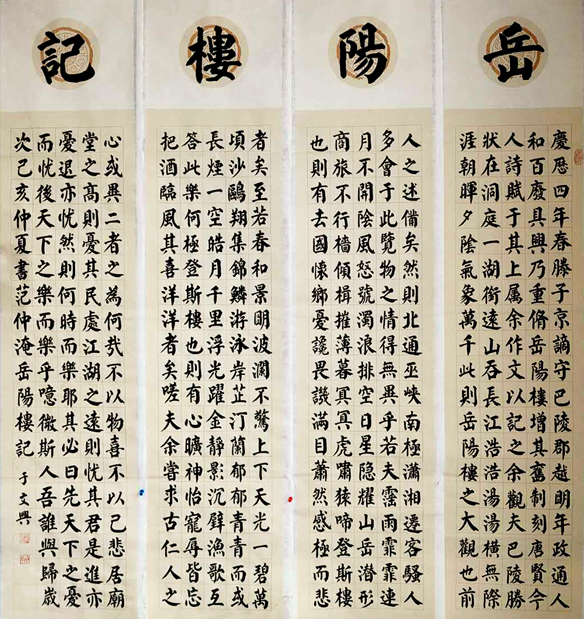 岳陽樓記
慶曆四年春滕子京謫守巴陵郡越明年政通人
和百廢具興乃重脩岳陽樓增其舊制刻唐賢今
人詩賦于其上属余作文以記之余觀夫巴陵勝
狀在洞庭一湖銜遠山吞長江浩浩湯湯橫無際
涯朝暉夕陰氣象萬千此則岳陽樓之大觀也前
人之述備矣然則北通巫峽南極瀟湘遷客騷人
多會于此覽物之情得無異乎若夫霪雨霏霏連
月不開陰風怒號濁浪排空日星隐耀山岳潜形
商旅不行檣傾楫摧薄暮冥冥虎嘯猿啼登斯樓
也則有去國懷鄉憂讒畏譏滿目蕭然感極而悲
者矣至若春和景明波瀾不驚上下天光一碧萬
頃沙鷗翔集錦鱗游泳岸芷汀蘭郁郁青青而或
長煙一空皓月千里浮光躍金静影沉璧漁歌互
答此樂何極登斯樓也則有心曠神怡寵辱皆忘
把酒臨風其喜洋洋者矣嗟夫余嘗求古仁人之
心或異二者之為何哉不以物喜不以己悲居廟
堂之高則憂其民處江湖之遠則忧其君是進亦
憂退亦忧然則何時而樂耶其必曰先天下之憂
而忧後天下之樂而樂乎噫微斯人吾誰與歸歲
次己亥仲夏書范仲淹岳陽樓記 于文興